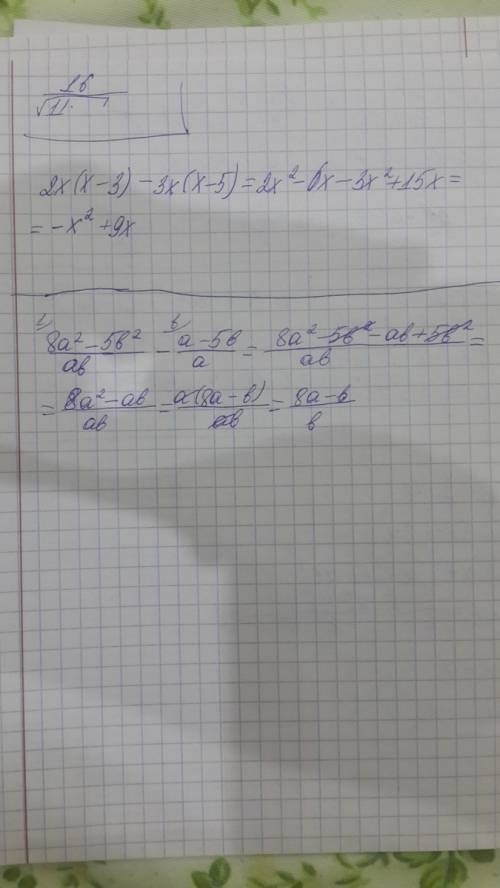 16
√11·
2x(x-3)-3x(x-5)=2x²-6x-3x²+15x=
=-x²+9x
1/ (8a²-5b²)/ab - b/ (a-5b)/a = (8a²-5b²-ab+5b²)/ab =
= (8a²-ab)/ab = a(8a-b)/ab = (8a-b)/b